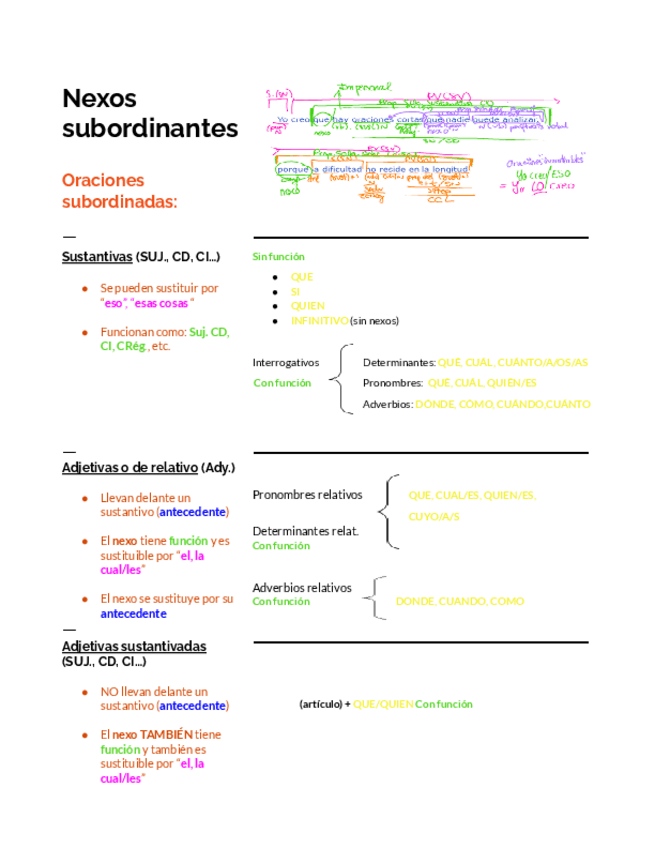 Nexos
subordinantes
Impersonal
Yo creo que hay oraciones cortas que nadie puede analizar,
nexo
porque la dificultad no reside en la longitud
nexo
CCL
Oraciones
subordinadas:
Sustantivas (SUJ., CD, CI...)
Se pueden sustituir por
"eso", "esas cosas"
Funcionan como: Suj. CD,
CI, CRég., etc.
Sin función
QUE
SI
QUIEN
INFINITIVO (sin nexos)
Interrogativos
Con función
Determinantes: QUÉ, CUÁL, CUÁNTO/A/OS/AS
Pronombres: QUÉ, CUÁL, QUIÉN/ES
Adverbios: DÓNDE, CÓMO, CUÁNDO,CUÁNTO
Adjetivas o de relativo (Ady.)
Llevan delante un
sustantivo (antecedente)
El nexo tiene función y es
sustituible por "el, la
cual/les"
El nexo se sustituye por su
antecedente
Pronombres relativos
Determinantes relat.
Con función
QUE, CUAL/ES, QUIEN/ES,
CUYO/A/S
Adverbios relativos
Con función
DONDE, CUANDO, COMO
Adjetivas sustantivadas
(SUJ., CD, CI...)
NO llevan delante un
sustantivo (antecedente)
El nexo TAMBIÉN tiene
función y también es
sustituible por "el, la
cual/les"
(artículo) + QUE/QUIEN Con función